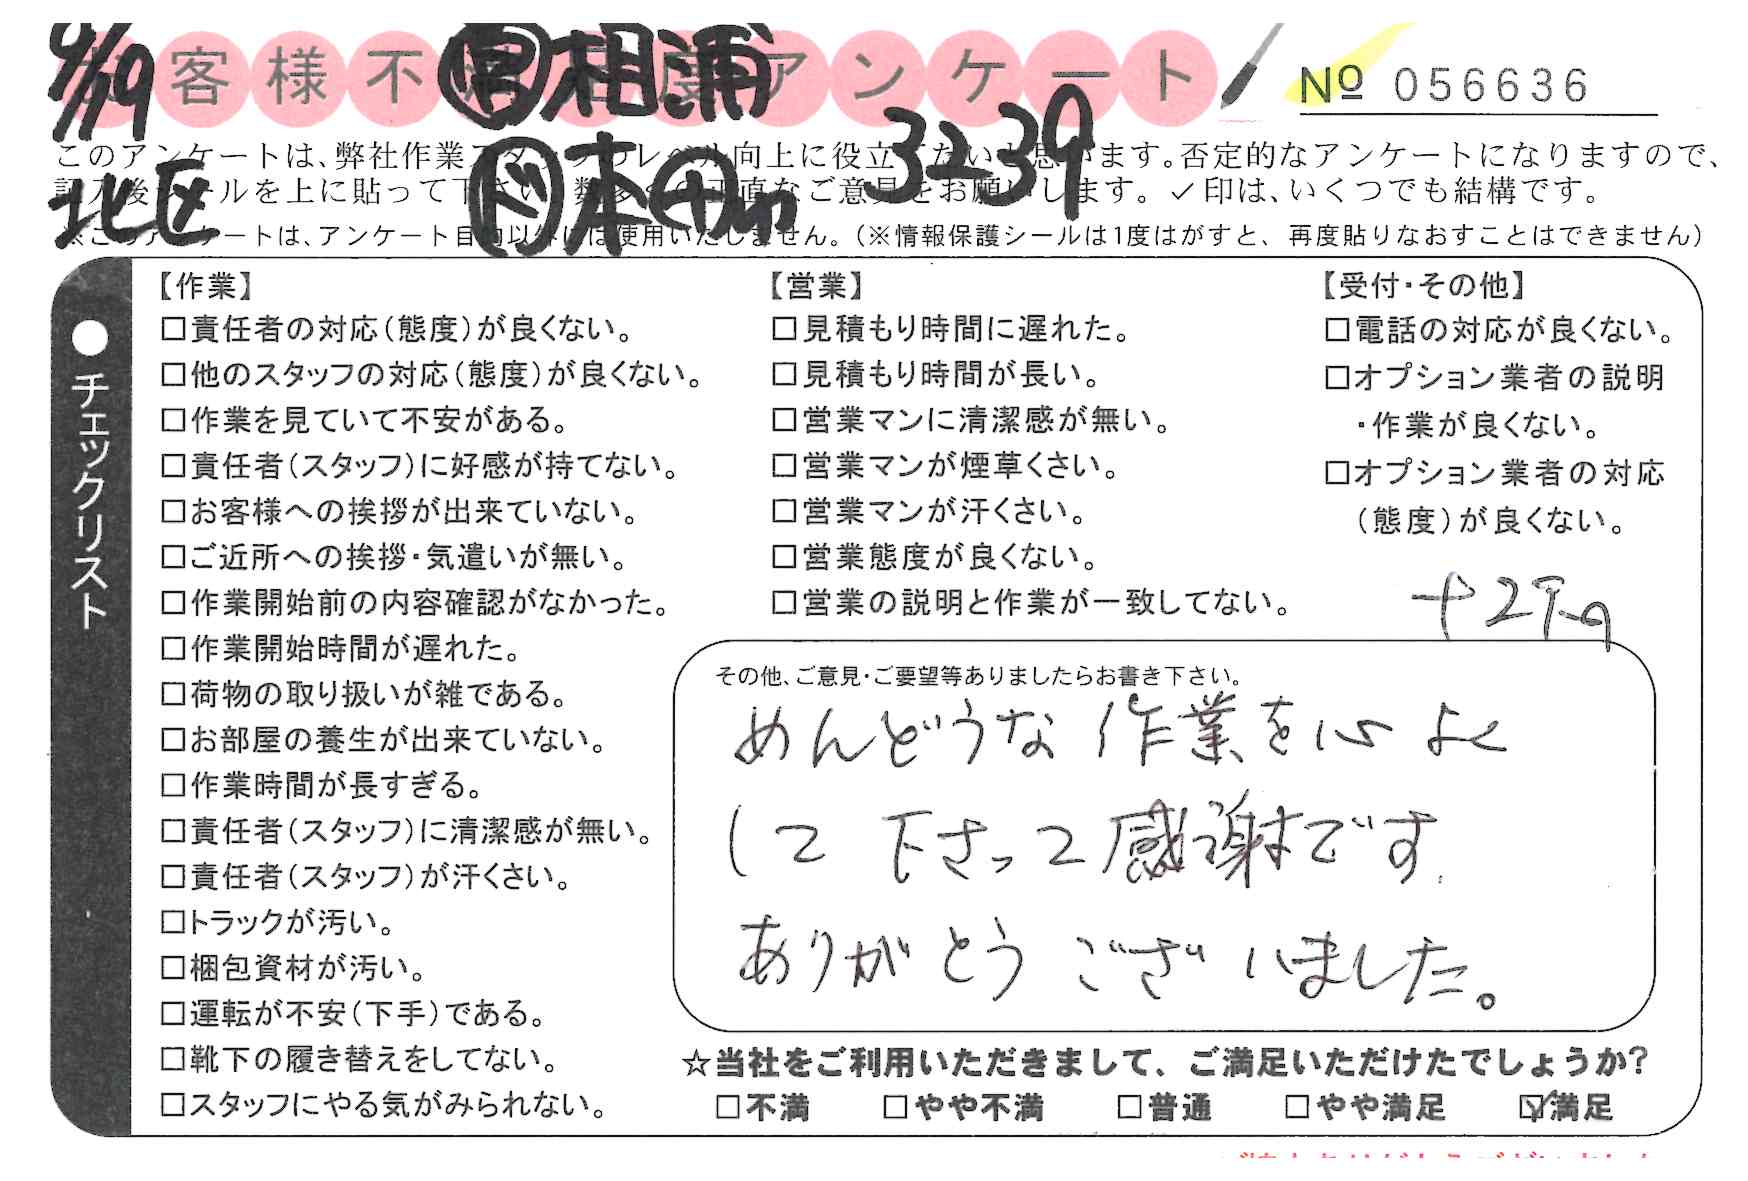 4/19
お客様不満足度アンケート
男相浦
№ 056636
3239
このアンケートは、弊社作業スタッフのレベル向上に役立てたいと思います。否定的なアンケートになりますので、
記入後シールを上に貼って下さい。数多くの正直なご意見をお願いします。✓印は、いくつでも結構です。
北区
※このアンケートは、アンケート目的以外には使用いたしません。(※情報保護シールは1度はがすと、再度貼りなおすことはできません)
●チェックリスト
【作業】
□責任者の対応(態度)が良くない。
□他のスタッフの対応(態度)が良くない。
□作業を見ていて不安がある。
□責任者(スタッフ)に好感が持てない。
□お客様への挨拶が出来ていない。
□ご近所への挨拶・気遣いが無い。
□作業開始前の内容確認がなかった。
□作業開始時間が遅れた。
□荷物の取り扱いが雑である。
□お部屋の養生が出来ていない。
□作業時間が長すぎる。
□責任者(スタッフ)に清潔感が無い。
□責任者(スタッフ)が汗くさい。
□トラックが汚い。
□梱包資材が汚い。
□運転が不安(下手)である。
□靴下の履き替えをしてない。
□スタッフにやる気がみられない。
【営業】
□見積もり時間に遅れた。
□見積もり時間が長い。
□営業マンに清潔感が無い。
□営業マンが煙草くさい。
□営業マンが汗くさい。
□営業態度が良くない。
□営業の説明と作業が一致してない。
【受付・その他】
□電話の対応が良くない。
□オプション業者の説明
・作業が良くない。
□オプション業者の対応
(態度)が良くない。
その他、ご意見・ご要望等ありましたらお書き下さい。
めんどうな作業を心よく
して下さって感謝です
ありがとうございました。
☆当社をご利用いただきまして、ご満足いただけたでしょうか?
□不満 □やや不満 □普通 □やや満足 ☑満足